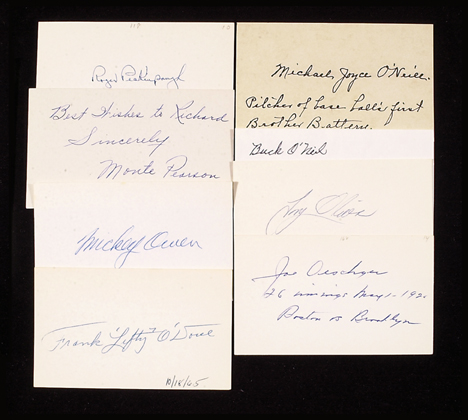 Roger Peckinpaugh
Best Wishes to Richard
Sincerely
Monte Pearson
Mickey Owen
Frank "Lefty" O'Doul
10/12/65
Michael Joyce O'Neill.
Pitcher of base ball's first
Brother Battery.
Buck O'Neil
Tony Oliva
Joe Oeschger
26 innings May 1-1920
Boston vs Brooklyn